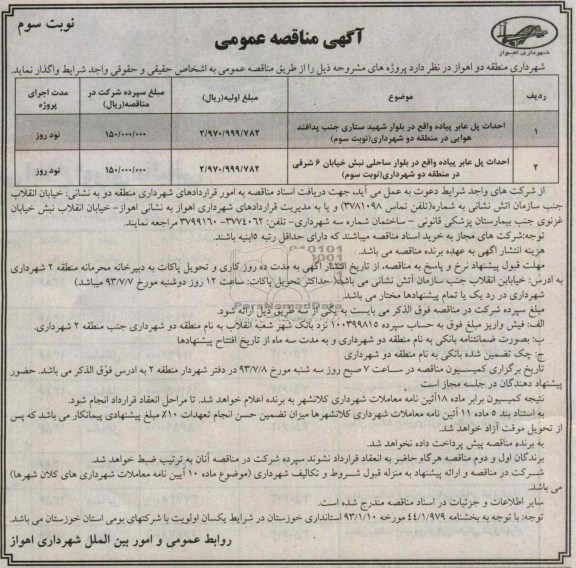 نوبت سوم
شهرداری اهواز
آگهی مناقصه عمومی
شهرداری منطقه دو اهواز در نظر دارد پروژه های مشروحه ذیل را از طریق مناقصه عمومی به اشخاص حقیقی و حقوقی واجد شرایط واگذار نماید.
ردیف موضوع مبلغ اولیه(ریال) مبلغ سپرده شرکت در مناقصه(ریال) مدت اجرای پروژه
۱ احداث پل عابر پیاده واقع در بلوار شهید ستاری جنب پدافند هوایی در منطقه دو شهرداری(نوبت سوم) ۲/۹۷۰/۹۹۹/۷۸۲ ۱۵۰/۰۰۰/۰۰۰ نود روز
۲ احداث پل عابر پیاده واقع در بلوار ساحلی نبش خیابان ۶ شرقی در منطقه دو شهرداری(نوبت سوم) ۲/۹۷۰/۹۹۹/۷۸۲ ۱۵۰/۰۰۰/۰۰۰ نود روز
از شرکت های واجد شرایط دعوت به عمل می آید، جهت دریافت اسناد مناقصه به امور قراردادهای شهرداری منطقه دو به نشانی: خیابان انقلاب
جنب سازمان اتش نشانی به شماره(تلفن تماس ۳۷۸۱۰۹۸) و یا به مدیریت قراردادهای شهرداری اهواز به نشانی اهواز- خیابان انقلاب نبش خیابان
غزنوی جنب بیمارستان پزشکی قانونی – ساختمان شماره سه شهرداری- تلفن: ۳۷۷۴۰۶۲- ۳۷۹۹۱۶۰ مراجعه نمایند.
توجه:شرکت های مجاز به خرید اسناد مناقصه میباشند که دارای حداقل رتبه ۵ابنیه باشند.
هزینه انتشار آگهی به عهده برنده مناقصه می باشد.
مهلت قبول پیشنهاد نرخ و پاسخ به مناقصه، از تاریخ انتشار آگهی به مدت ده روز کاری و تحویل پاکات به دبیرخانه محرمانه منطقه ۲ شهرداری
به ادرس: خیابان انقلاب جنب سازمان آتش نشانی می باشد(حداکثر تحویل پاکات: ساعت ۱۲ روز دوشنبه مورخ ۹۳/۷/۷ میباشد)
شهرداری در رد یک یا تمام پیشنهادها مختار می باشد.
مبلغ سپرده شرکت در مناقصه فوق الذکر می بایست به یکی از سه طریق ذیل ارائه شود.
الف: فیش واریز مبلغ فوق به حساب سپرده ۱۰۰۳۹۹۸۱۵ نزد بانک شهر شعبه انقلاب به نام منطقه دو شهرداری جنب منطقه ۲ شهرداری.
ب: بصورت ضمانتنامه بانکی به نام منطقه دو شهرداری و به مدت سه ماه از تاریخ افتتاح پیشنهادها
ج: چک تضمین شده بانکی به نام منطقه دو شهرداری
تاریخ برگزاری کمیسیون مناقصه در ساعت ۷ صبح روز سه شنبه مورخ ۹۳/۷/۸ در دفتر شهردار منطقه ۲ به ادرس فوق الذکر می باشد. حضور
پیشنهاد دهندگان در جلسه مجاز است
نتیجه کمیسیون برابر ماده ۱۸آئین نامه معاملات شهرداری کلانشهر به برنده اعلام خواهد شد. تا مراحل انعقاد قرارداد انجام شود.
به استناد بند ۵ ماده ۱۱ آئین نامه معاملات شهرداری کلانشهرها میزان تضمین حسن انجام تعهدات ۱۰٪ مبلغ پیشنهادی پیمانکار می باشد که پس
از تحویل موقت آزاد خواهد شد.
به برنده مناقصه پیش پرداخت داده نخواهد شد.
برندگان اول و دوم مناقصه هرگاه حاضر به انعقاد قرارداد نشوند سپرده شرکت در مناقصه آنان به ترتیب ضبط خواهد شد.
شرکت در مناقصه و ارائه پیشنهاد به منزله قبول شروط و تکالیف شهرداری (موضوع ماده ۱۰ آیین نامه معاملات شهرداری های کلان شهرها)
می باشد.
سایر اطلاعات و جزئیات در اسناد مناقصه مندرج شده است.
توجه: با توجه به بخشنامه ۴۴/۱/۹۷۹ مورخه ۹۳/۱/۱۰ استانداری خوزستان در شرایط یکسان اولویت با شرکتهای بومی استان خوزستان می باشد.
روابط عمومی و امور بین الملل شهرداری اهواز